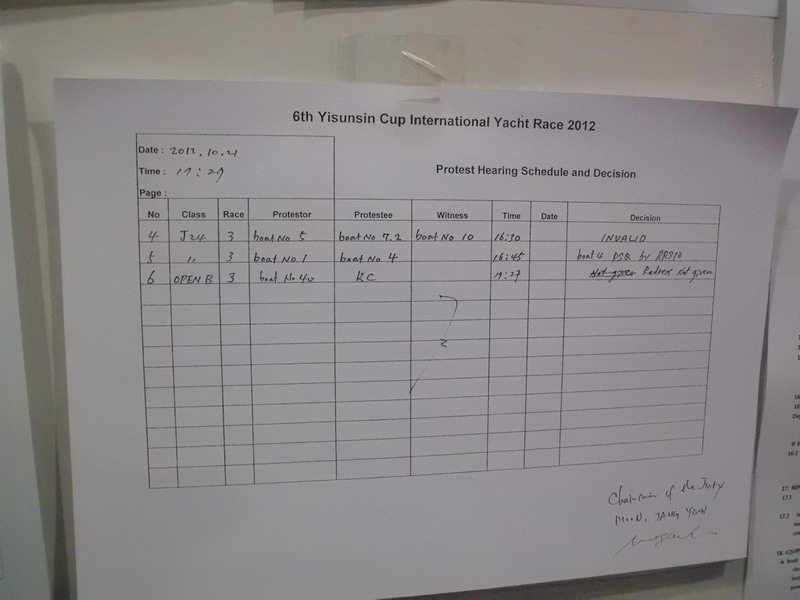 6th Yisunsin Cup International Yacht Race 2012
Date : 2012.10.21
Time : 17:29
Protest Hearing Schedule and Decision
Page :
No Class Race Protestor Protestee Witness Time Date Decision
4 J24 3 boat No 5 boat No 7.2 boat No 10 16:30 INVALID
5 〃 3 boat No 1 boat No 4 16:45 boat 4 DSQ by RRS10
6 OPEN B 3 boat No 40 RC 17:27 Not given Redress Not given
Chairman of the Jury
MOON, JANG YOUN